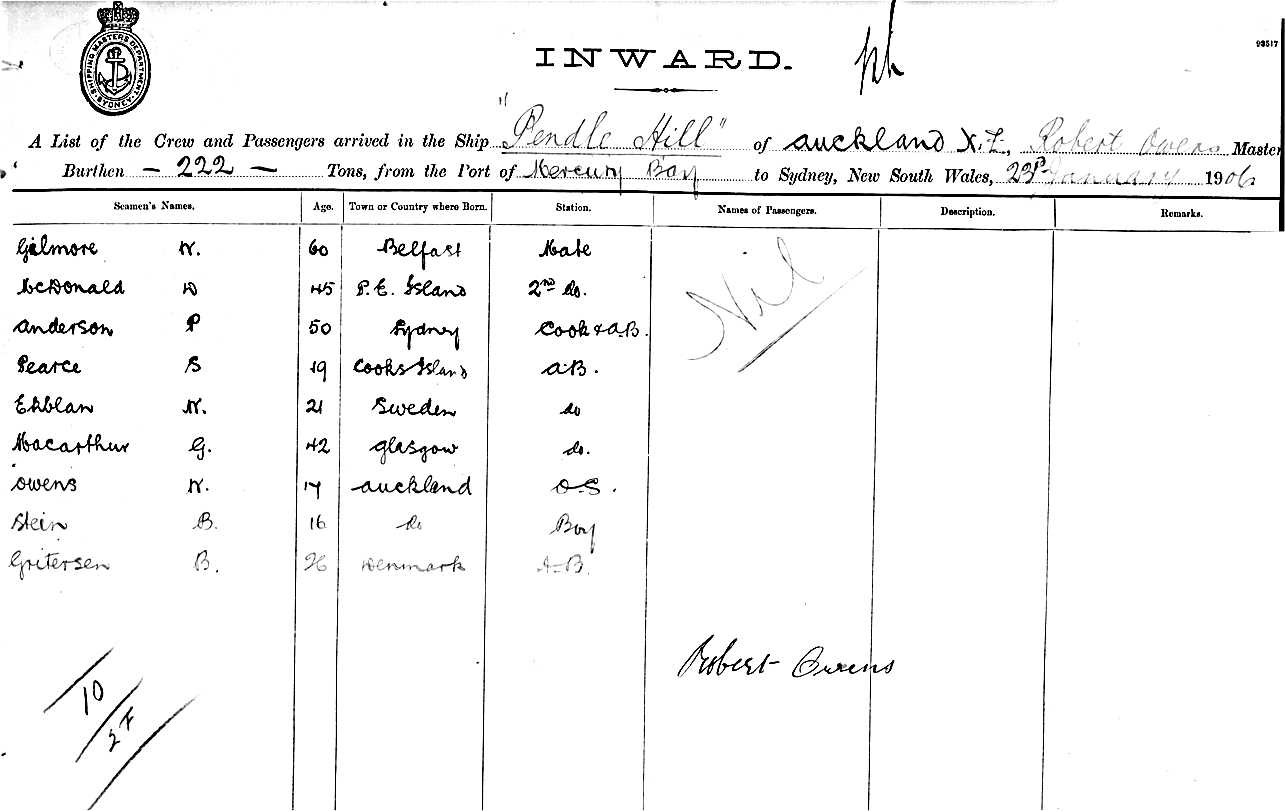 SHIPPING MASTERS DEPARTMENT
SYDNEY
INWARD.
93517
A List of the Crew and Passengers arrived in the Ship "Pendle Hill" of Auckland N.Z., Robert Owens Master
Burthen — 222 — Tons, from the Port of Mercury Bay to Sydney, New South Wales, 23rd January 1906
Seamen's Names. Age. Town or Country where Born. Station. Names of Passengers. Description. Remarks.
Gilmore W. 60 Belfast Mate
Nil
McDonald D 45 P.E. Island 2nd Do.
Anderson P 50 Sydney Cook & A.B.
Pearce S 19 Cooks Island A.B.
Ekblan W. 21 Sweden do
Macarthur G. 42 Glasgow do.
Owens W. 17 Auckland O.S.
Stein B. 16 do Boy
Gritersen B. 26 Denmark A.B.
Robert Owens
10